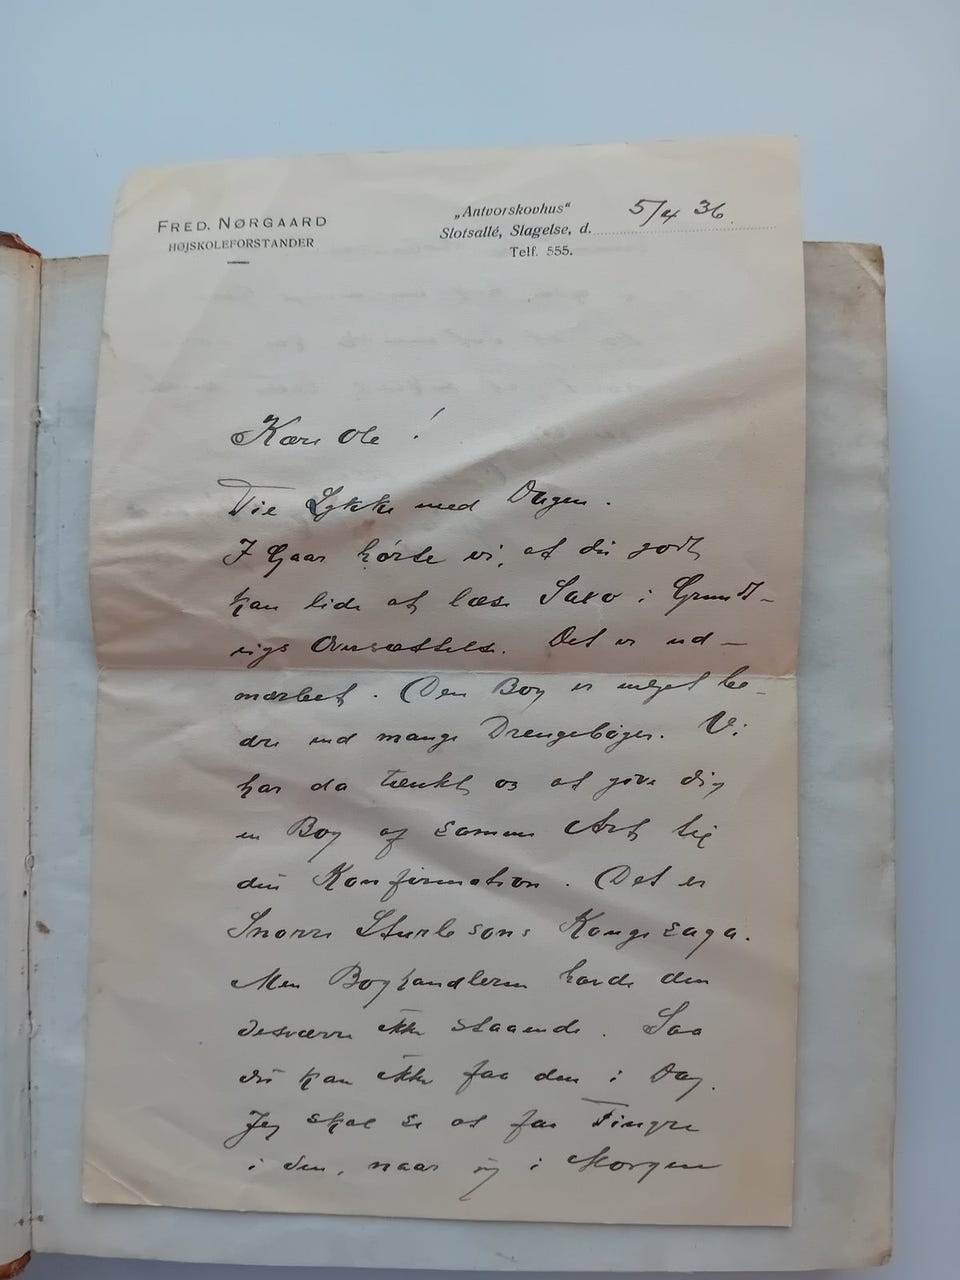 FRED. NØRGAARD
HØJSKOLEFORSTANDER
„Antvorskovhus"
Slotsallé, Slagelse, d. 5/4 36.
Telf. 555.
Kære Ole!
Til Lykke med Dagen.
I Gaar hørte vi, at du godt
kan lide at læse Saxo i Grundt-
vigs Oversættelse. Det er ud-
mærket. Den Bog er meget be-
dre end mange Drengebøger. Vi
har da tænkt os at give dig
en Bog af samme Art til
din Konfirmation. Det er
Snorre Sturlesons Kongesaga.
Men Boghandleren havde den
desværre ikke staaende. Saa
du kan ikke faa den i Dag.
Jeg skal se at faa Fingre
i den, naar jeg i Morgen